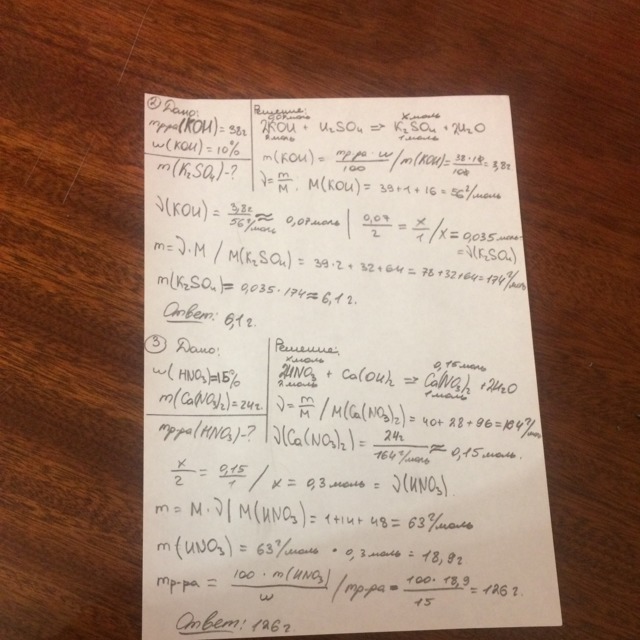 ② Дано:
mр-ра(KOH) = 38г
w(KOH) = 10%
m(K₂SO₄) - ?
Решение:
0,07моль x моль
2KOH + H₂SO₄ => K₂SO₄ + 2H₂O
2моль 1моль
m(KOH) = mр-ра · w / 100 / m(KOH) = 38·10 / 100 = 3,8г
ν = m/M . M(KOH) = 39+1+16 = 56г/моль
ν(KOH) = 3,8г / 56г/моль ≈ 0,07моль | 0,07/2 = x/1 / x = 0,035моль = ν(K₂SO₄)
m = ν·M / M(K₂SO₄) = 39·2 + 32 + 64 = 78+32+64 = 174г/моль
m(K₂SO₄) = 0,035·174 ≈ 6,1г.
Ответ: 6,1г.
③ Дано:
w(HNO₃) = 15%
m(Ca(NO₃)₂) = 24г.
mр-ра(HNO₃) - ?
Решение:
x моль 0,15моль
2HNO₃ + Ca(OH)₂ => Ca(NO₃)₂ + 2H₂O
2моль 1моль
ν = m/M / M(Ca(NO₃)₂) = 40 + 28 + 96 = 164г/моль
ν(Ca(NO₃)₂) = 24г / 164г/моль ≈ 0,15моль.
x/2 = 0,15/1 / x = 0,3моль = ν(HNO₃)
m = M·ν | M(HNO₃) = 1+14+48 = 63г/моль
m(HNO₃) = 63г/моль · 0,3моль = 18,9г
mр-ра = 100·m(HNO₃) / w / mр-ра = 100·18,9 / 15 = 126г.
Ответ: 126г.